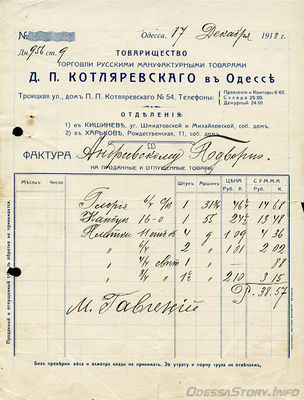 №
Одесса, 17 Декабря 1912 г.
Дн. 956 ст. 9
ТОВАРИЩЕСТВО
ТОРГОВЛИ РУССКИМИ МАНУФАКТУРНЫМИ ТОВАРАМИ
Д. П. КОТЛЯРЕВСКАГО въ Одессѣ
Троицкая ул., домъ П. П. Котляревскаго № 54. Телефоны:
Правленія и Конторы 6/65.
Склада 25-20.
Дежурный 24.01.
ОТДѢЛЕНІЯ:
1) въ КИШИНЕВѢ, уг. Шмидтовской и Михайловской, соб. домъ.
2) въ ХАРЬКОВѢ, Рождественская, 11, соб. домъ.
ФАКТУРА
НА ПРОДАННЫЕ И ОТПУЩЕННЫЕ ТОВАРЫ
МѢСЯЦЪ
Штукъ
Аршинъ
ЦѢНА
СУММА
Руб. К.
Руб. К.
1 31¾ 46½ 14 68
16-0 1 55 24½ 13 48
Платки 4 9 1 09 4 36
" 2/4 2 1 01 2 02
" 3/4 1 88
" 3/4 1½ 2 10 3 15
38.57
Проданный и отпущенный товаръ обратно не принимается.
Безъ провѣрки вѣса и осмотра клади не принимать. За утрату и порчу груза не отвѣчаемъ.
OdessaStory.info